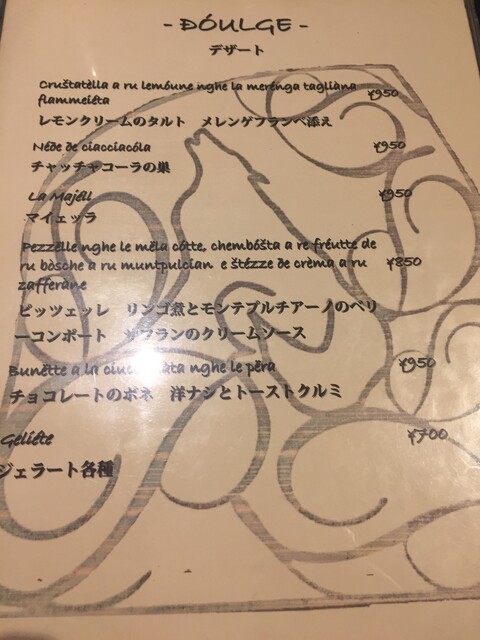 - ĐÓULGE -
デザート
Cruštatèlla a ru lemóune nghe la merènga tagliàna
flammeiéta ¥950
レモンクリームのタルト メレンゲフランベ添え
Néđe de ciacciacóla ¥950
チャッチャコーラの巣
La Majèll ¥950
マイェッラ
Pezzèlle nghe le mèla cótte, chembóšta a re fréutte de
ru bòsche a ru muntpulcian e štézze de crèma a ru ¥850
zafferàne
ピッツェッレ リンゴ煮とモンテプルチアーノのベリ
ーコンポート サフランのクリームソース
Bunètte a la nghe le péra ¥950
チョコレートのボネ 洋ナシとトーストクルミ
Geliéte ¥700
ジェラート各種